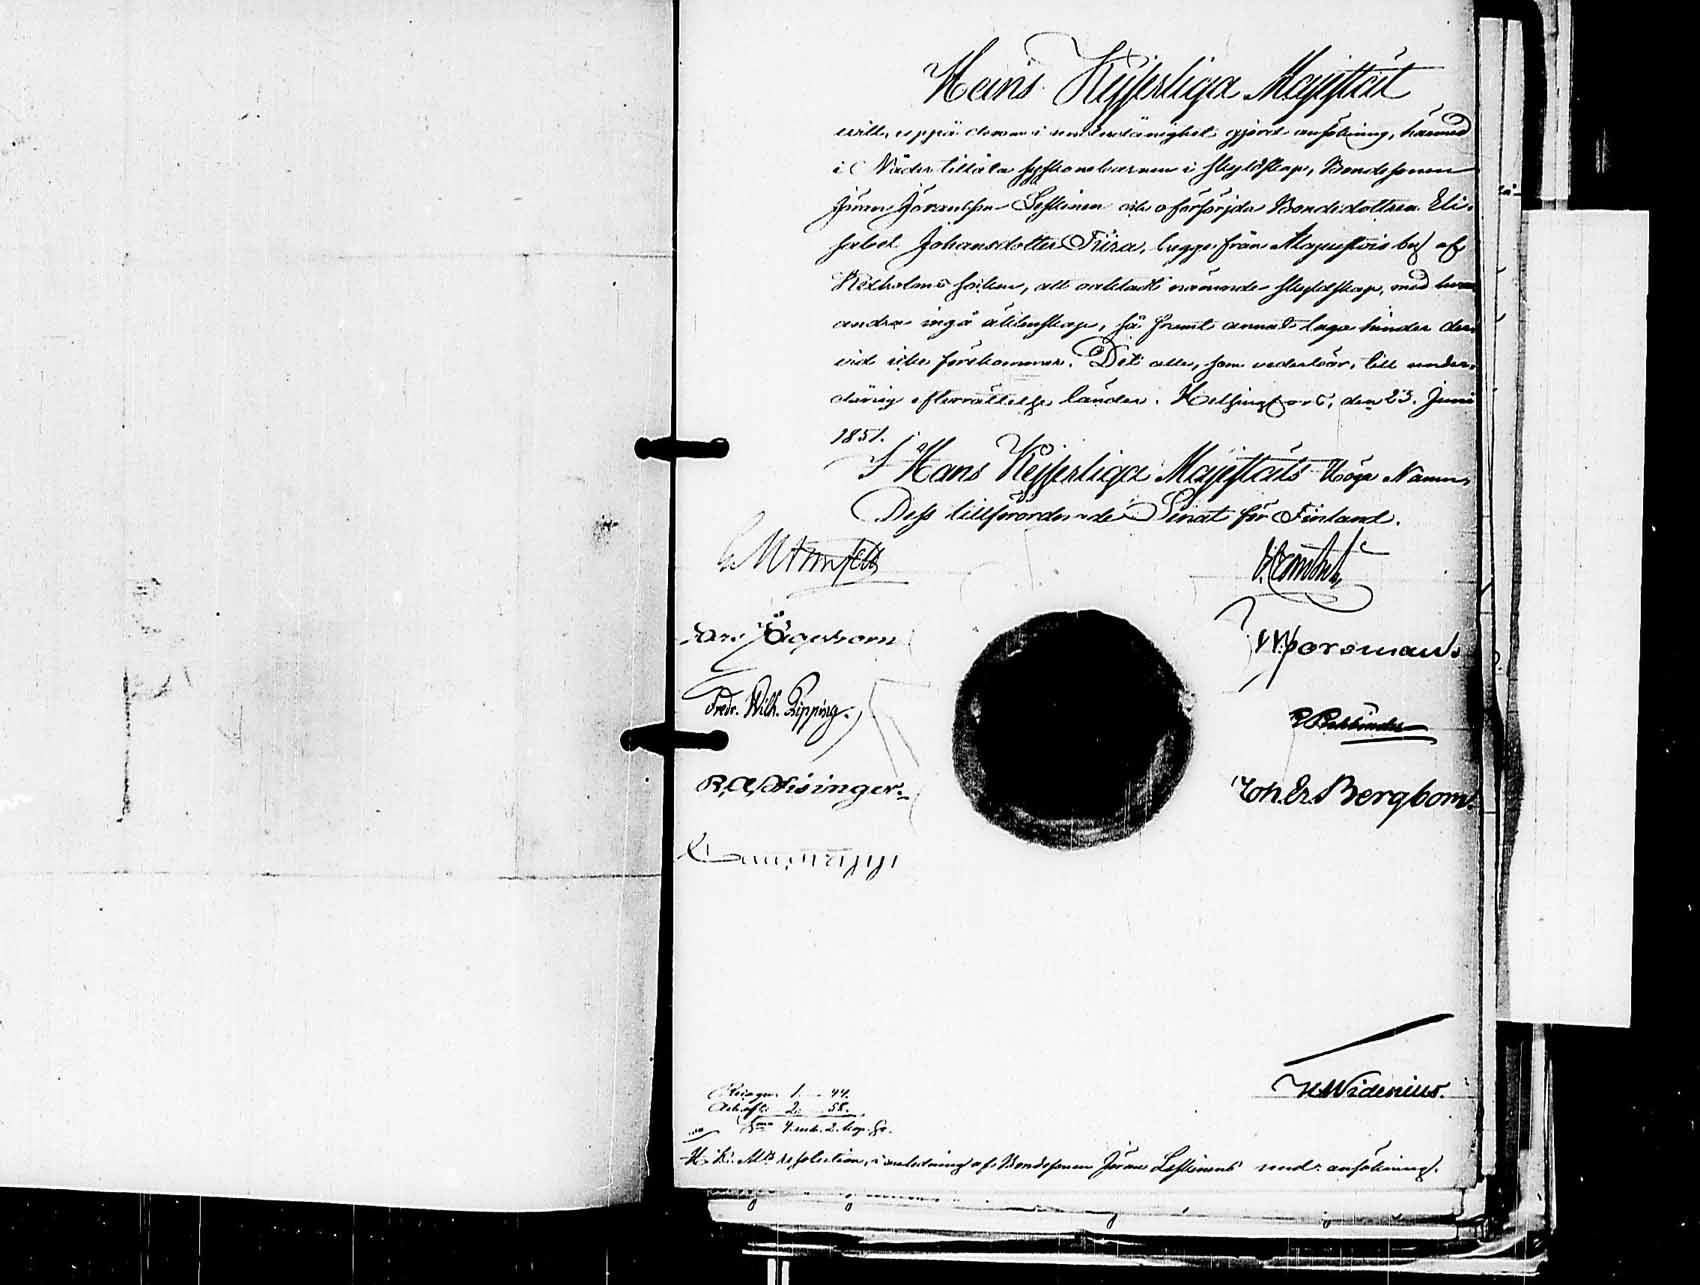 Hans Kejserliga Majestät
will, uppå derom i underdånighet gjord ansökning, härmed
i Nåder tillåta syskonebarnen i skyldskap, Bondesonen
Jöran Jöransson Leskinen och oförsörjda Bondedottren Eli-
sabet Johansdotter från by af
Kexholms socken, att oaktadt nämnde skyldskap, med hvar-
andra ingå äktenskap, så framt annat laga hinder der-
vid icke förekommer. Det alle, som vederbör, till under-
dånig efterrättelse länder. Helsingfors, den 23. Juni
1851.
I Hans Kejserliga Majestäts Höga Namn,
Dess tillförordnade Senat för Finland.
Fredr. Wilh. Pipping.
R. A. Hisinger.
Joh. Er. Bergbom.
Widenius.
1. 44.
2. 58.
4. 2. kop. Sr.
H. K. Mts resolution, i anledning af Bondesonen Jöran Leskinens und: ansökning.